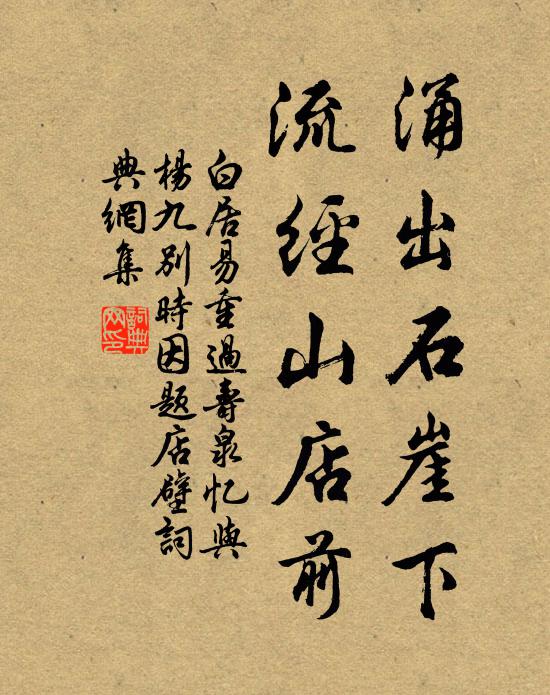 涌出石崖下
流經山店前
白居易重過壽泉忆與
楊九别時因题店壁詞
典網集
詞典
网印